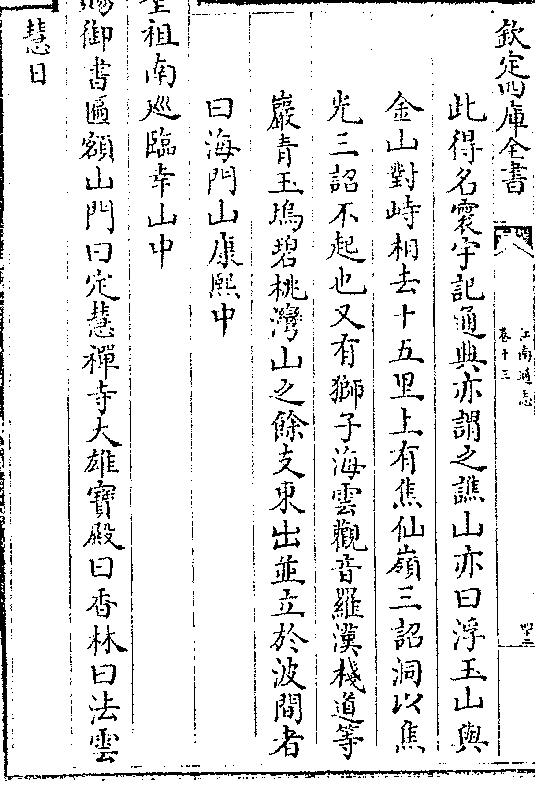 欽定四庫全書
江南通志
卷十三
此得名寰宇記通典亦謂之譙山亦曰浮玉山與
金山對峙相去十五里上有焦仙嶺三詔洞以焦
光三詔不起也又有獅子海雲觀音羅漢棧道等
巖青玉塢碧桃灣山之餘支東出並立於波間者
曰海門山康熙中
聖祖南巡臨幸山中
賜御書匾額山門曰定慧禪寺大雄寶殿曰香林曰法雲
慧日